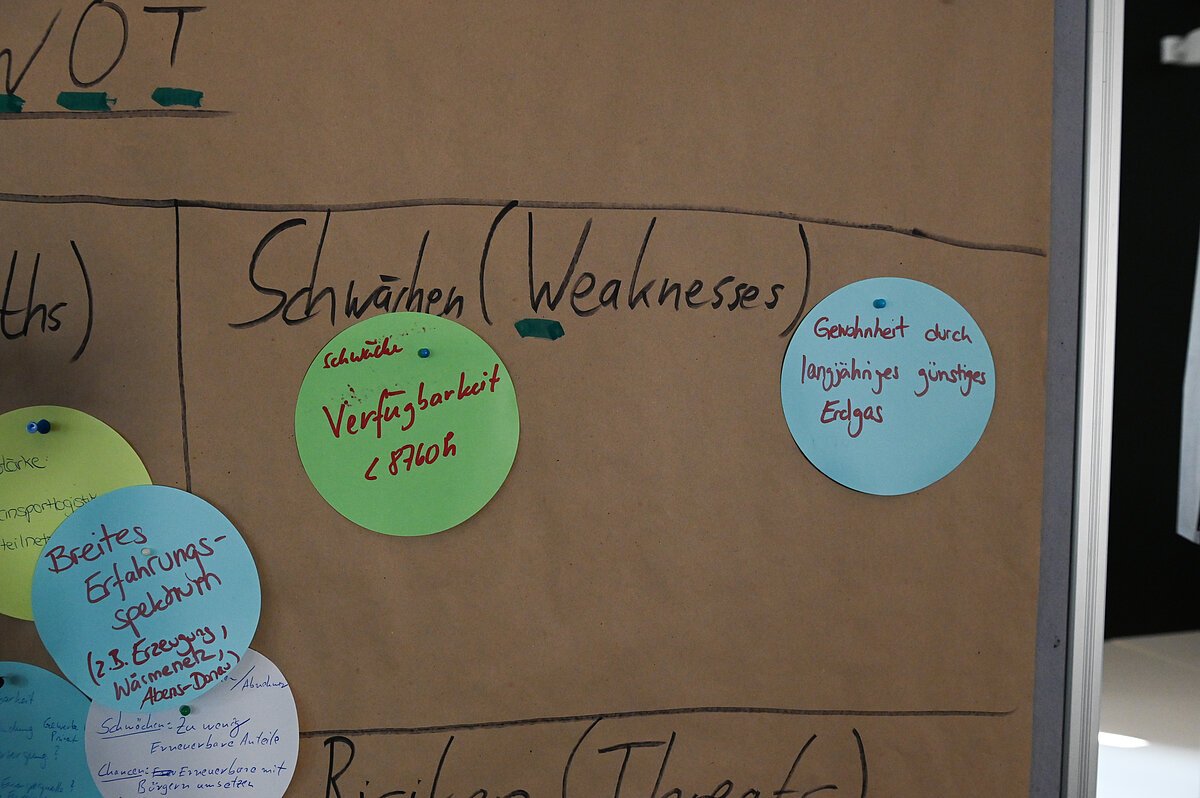 WOT
ths)
Schwächen (Weaknesses)
Schwäche
Verfügbarkeit
< 8760h
Gewohnheit durch
langjähriges günstiges
Erdgas
stärke:
ansportlogistik
teilnetz
Breites
Erfahrungs-
spektrum
(z.B. Erzeugung,
Wärmenetz,
Abens-Donau)
/Abnehmer
Schwächen: Zu wenig
Erneuerbare Anteile
Chancen: Erneuerbare mit
Bürgern umsetzen
barkeit
Gewerbe
Privat
Risiken (Threats)